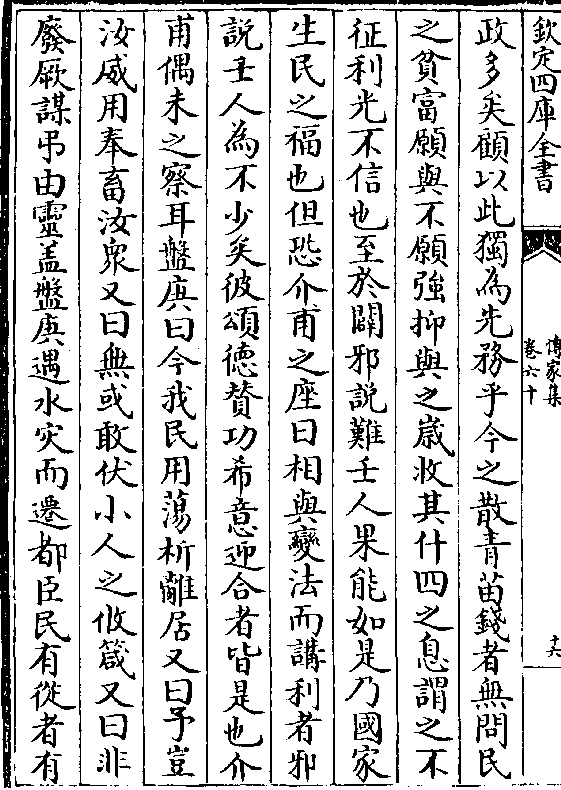 欽定四庫全書
傳家集
卷六十
十六
政多矣顧以此獨為先務乎今之散青苗錢者無問民
之貧富願與不願強抑與之歲收其什四之息謂之不
征利光不信也至於闢邪說難壬人果能如是乃國家
生民之福也但恐介甫之座日相與變法而講利者邪
說壬人為不少矣彼頌德賛功希意迎合者皆是也介
甫偶未之察耳盤庚曰今我民用蕩析離居又曰予豈
汝威用奉畜汝衆又曰無或敢伏小人之攸箴又曰非
廢厥謀弔由靈盖盤庚遇水灾而遷都臣民有從者有